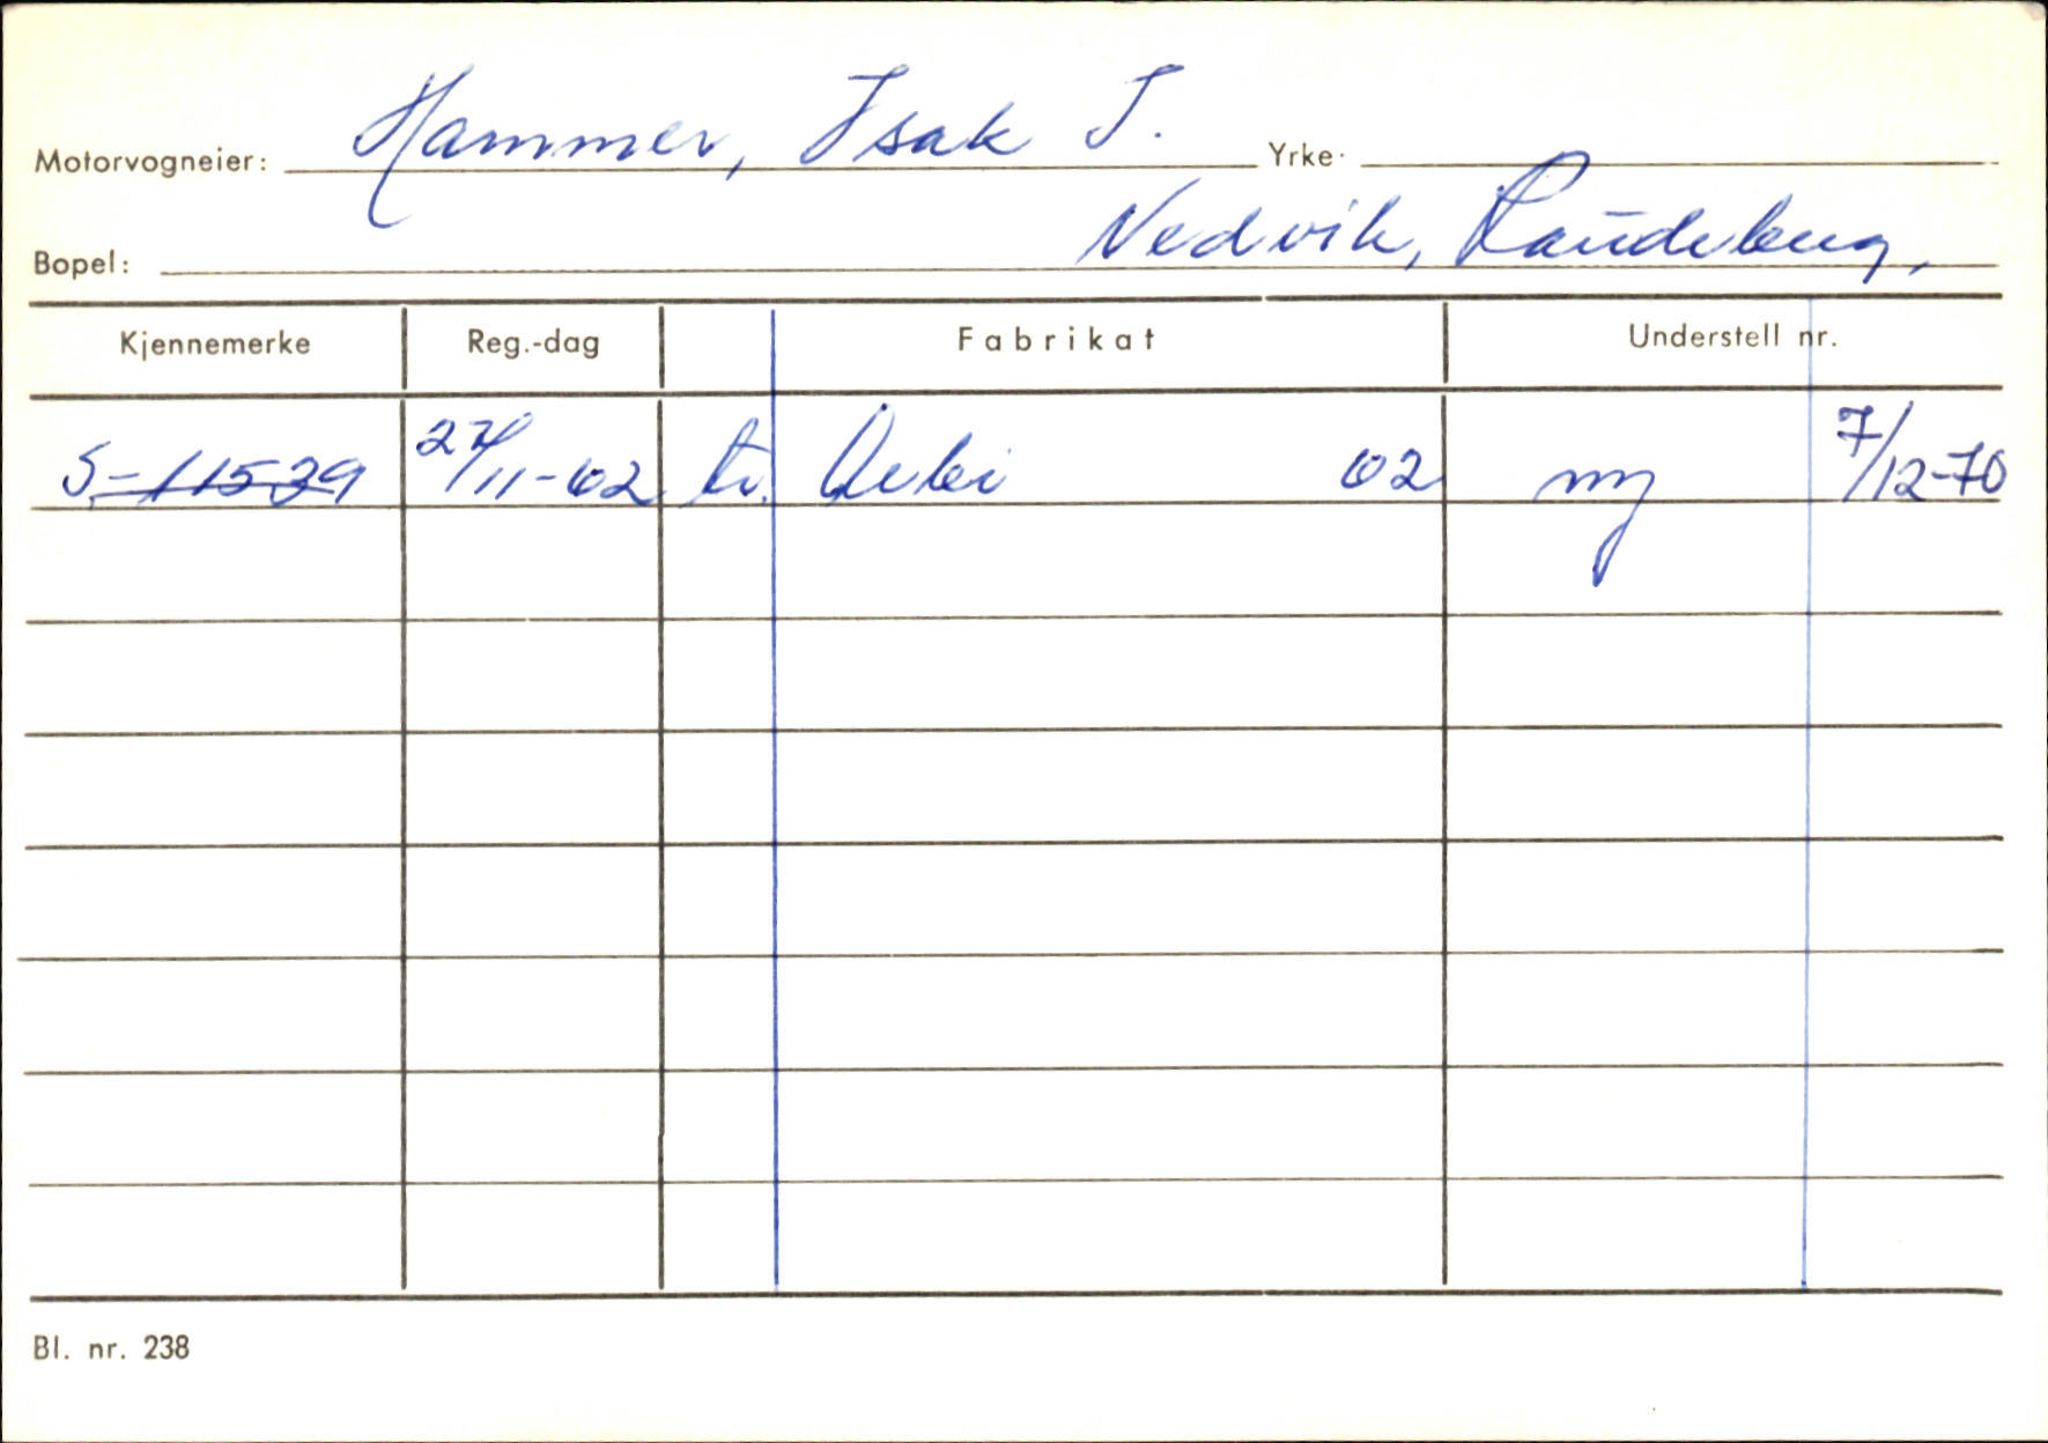 Motorvogneier: Hammer, Isak J. Yrke:
Bopel: Nedvik, Raudeberg,
Kjennemerke Reg.-dag Fabrikat Understell nr.
S-11539 27/11-62 tr. Aebi 62 ny 7/12-70
Bl. nr. 238